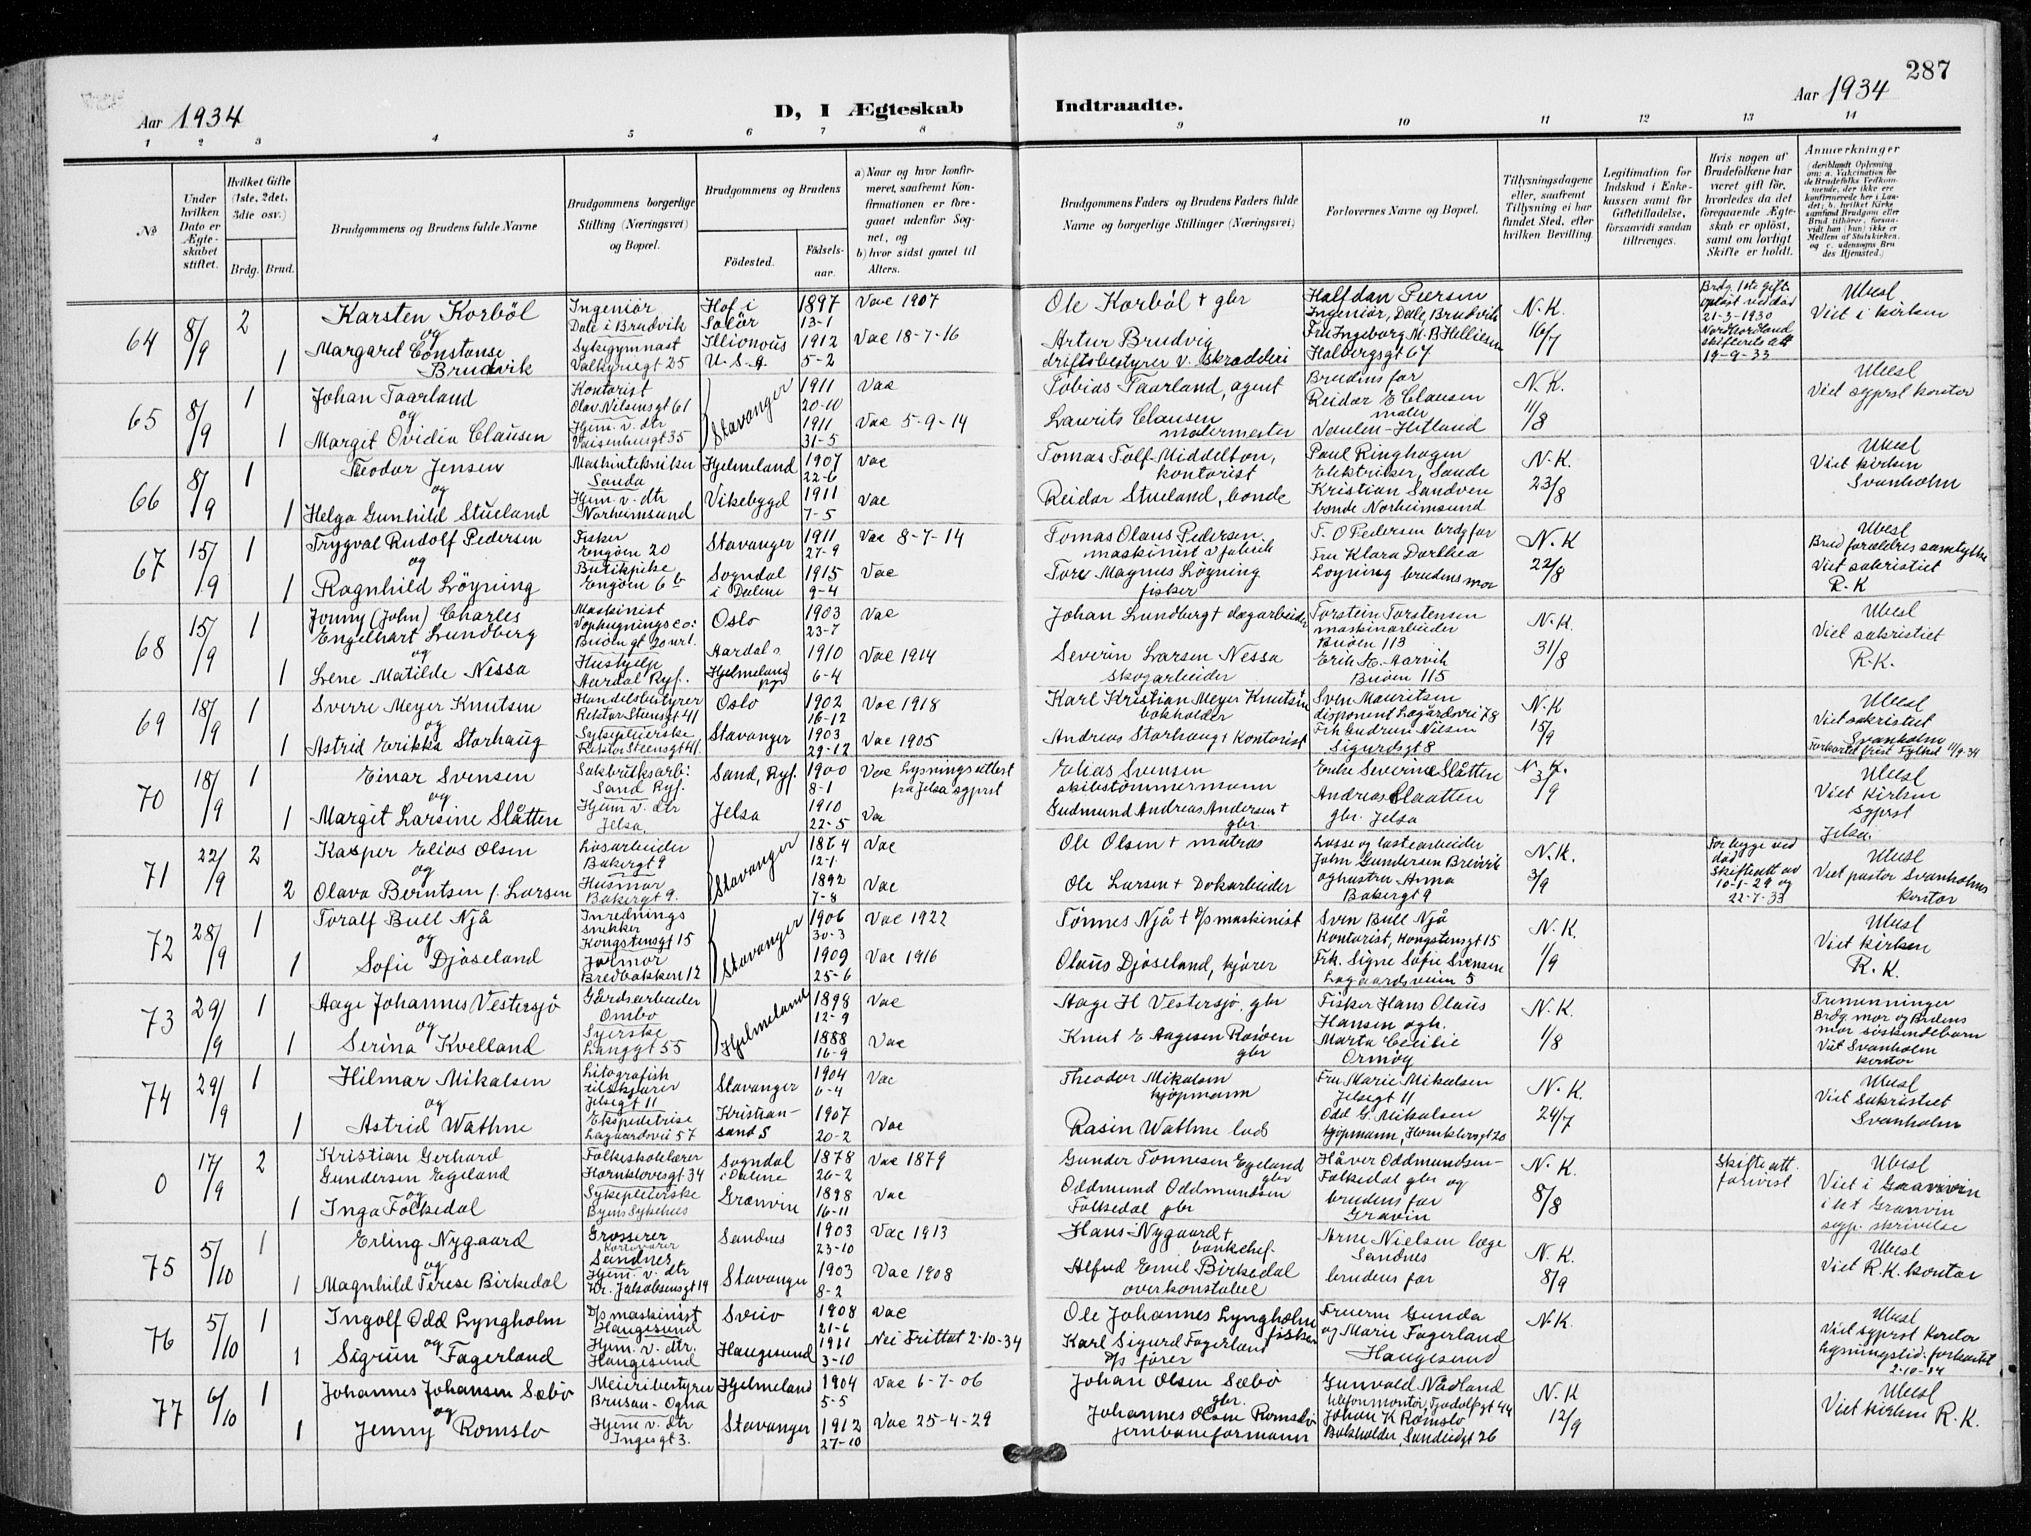 287
Aar 1934
D, I Ægteskab Indtraadte.
Aar 1934
1 2 3 4 5 6 7 8 9 10 11 12 13 14
No
Under hvilken Dato er Ægteskabet stiftet.
Hvilket Gifte (1ste, 2det, 3die osv.)
Brdg. Brud.
Brudgommens og Brudens fulde Navne
Brudgommens borgerlige Stilling (Næringsvei) og Bopæl.
Brudgommens og Brudens
Fødested. Fødselsaar.
a) Naar og hvor konfirmeret, saafremt Konfirmationen er foregaaet udenfor Sognet, og
b) hvor sidst gaaet til Alters.
Brudgommens Faders og Brudens Faders fulde Navne og borgerlige Stillinger (Næringsvei)
Forlovernes Navne og Bopæl.
Tillysningsdagene eller, saafremt Tillysning ei har fundet Sted, efter hvilken Bevilling.
Legitimation for Indskud i Enkekassen samt for Giftetilladelse, forsaavidt saadan tiltrænges.
Hvis nogen af Brudefolkene har været gift før, hvorledes da det foregaaende Ægteskab er opløst, samt om lovligt Skifte er holdt.
Anmærkninger
64 8/9 2 Karsten Korbøl Ingeniør Hof i 1897 Vac 1907 Ole Korbøl + gbr Halfdan Piersen N.K. Ubesl
og Dale i Brudvik Solør 13-1 Ingeniør, Dale, Brudvik 16/7 21-3-1930 Viet i kirken
1 Margaret Constanse Sykegymnast Illionois 1912 Vac 18-7-16 Artur Brudvig Fru Ingeborg M. B. Helliesen Nordhordland
Brudvik Valkyriegt 25 U.S.A. 5-2 driftsbestyrer v. skrædderi Holbergsgt 67 19-9-33
65 8/9 1 Johan Taarland Kontorist Stavanger 1911 Vac Tobias Taarland, agent Brudens far N.K. Ubesl
og Olav Nilsensgt 61 20-10 Reidar E Clausen 11/8 Viet sgprst kontor
1 Margit Ovidia Clausen Hjem. v. dtr 1911 Vac 5-9-14 Laurits Clausen maler
Vaisenhusgt 35 31-5 malermester Vaulen-Hetland
66 8/9 1 Teodor Jensen Maskintekniker Hjelmeland 1907 Vac Tomas Tolf-Middelton, Paul Ringhagen N.K. Ubesl
og Sauda 22-6 kontorist Elektriker, Saude 23/8 Viet kirken
1 Helga Gunhild Stueland Hjem. v. dtr Vikebygd 1911 Vac Reidar Stueland, bonde Kristian Sandven Svanholm
Norheimsund 7-5 bonde Norheimsund
67 15/9 1 Trygval Rudolf Pedersen Fisker Stavanger 1911 Vac 8-7-14 Tomas Olaus Pedersen T. O Pedersen brdg far N.K Ubesl
og Engøen 20 27-9 maskinist v fabrik Fru Klara Dorthea 22/8 Brud forældres samtykke
1 Ragnhild Løyning Butikpike Sogndal 1915 Vac Tore Magnus Løyning Løyning brudens mor Viet sakristiet
Engøen 6b i Dalene 9-4 fisker R.K
68 15/9 1 Jonny (John) Charles Maskinist Oslo 1903 Vac Johan Lundberg + dagarbeider Torstein Torstensen N.K. Ubesl
Engelhart Lundberg Vophugnings co: 23-7 maskinarbeider 31/8 Viet sakristiet
og Buøen 113
1 Lene Matilde Nessa Hushjelp Aardal 1910 Vac 1914 Severin Larsen Nessa Erik H. Aarvik R.K.
Aardal Ryf. Hjelmeland 6-4 skogarbeider Buøen 115
69 18/9 1 Sverre Meyer Knutsen Handelsbestyrer Oslo 1902 Vac 1918 Karl Kristian Meyer Knutsen Sven Mauritsen N.K Ubesl
og Rektor Steensgt 41 16-12 bokholder disponent Lagårdsvei 78 15/9 Viet sakristiet
1 Astrid Erikka Storhaug Sykepleierske Stavanger 1903 Vac 1905 Andreas Storhaug + Kontorist Frk Gudrun Nilsen Svanholm
Rektor Steensgt 41. 29-12 Sigurdsgt 8 Forkortet frist Fylket 11/9-34
70 18/9 1 Einar Svensen Sakbruksarb: Sand, Ryf. 1900 Vac Lysningsattest Elias Svensen Enke Severine Slåtten N.K. Ubesl
og Sand Ryf. 8-1 fra Jelsa sgprst skibstømmermann 3/9 Viet kirken
1 Margit Larsine Slåtten Hjem v. dtr Jelsa 1910 Vac Gudmund Andreas Andersen + Andreas Slaatten sgprst
Jelsa. 22-5 gbr gbr. Jelsa Jelsa.
71 22/9 2 Kasper Elias Olsen Løsarbeider Stavanger 1864 Vac Ole Olsen + matros Losse og lastearbeider N.K. Ubesl
og Bakergt 9 12-1. John Gundersen Breivik 3/9 Viet pastor Svanholms
2 Olava Berntsen f. Larsen Husmor 1892 Vac Ole Larsen + Dokarbeider og hustru Anna 10-1-29 og kontor
Bakergt 9. 7-8 Bakergt 9 22-7-33
72 28/9 1 Toralf Bull Njå Inrednings Stavanger 1906 Vac 1922 Tønnes Njå + d/s maskinist Sven Bull Njå N.K. Ubesl
og snekker 30-3 Kontorist, Kongstensgt 15 1/9 Viet kirken
Kongstensgt 15
1 Sofie Djøseland Jormor 1909 Vac 1916 Olaus Djøseland, kjører Frk. Signe Sofie Svensen R.K.
Bredbakken 12 25-6 Lagaardsveien 5
73 29/9 1 Aage Johannes Vestersjø Gårdsarbeider Hjelmeland 1898 Vac Aage H Vestersjø. gbr Fisker Hans Olaus N.K. Tremenninger
og Ombo 12-9 Hansen og hr. 1/8 Brdg. mor og Brudens
1 Serina Kvelland Syerske 1888 Vac Knut E Aagesen Rosøen Marta Cecilie mor siskendebarn
Langgt 55 16-9 gbr Ormøy Viet Svanholm kontor
74 29/9 1 Hilmar Mikalsen Litografisk Stavanger 1904 Vac Theodor Mikalsen Fru Marie Mikalsen N.K. Ubesl
og tilskjærer 6-4 kjøpmann Jelsegt 11 24/7 Viet Sakristiet
Jelsegt 11
1 Astrid Wathne Ekspeditrise Kristian- 1907 Vac Rasin Wathne lods Odd G. Mikalsen Svanholm
Lagaardsvei 57 sand S 20-2 kjøpmann, Hornklovesgt 20
0 17/9 2 Kristian Gerhard Folkeskolelærer Sogndal 1878 Vac 1879 Gunder Tønnesen Egeland Håver Oddmundsen- N.K. Skifteatt. Ubesl
Gundersen Egeland Hornklovesgt 34 i Dalene 26-2 gbr Folkedal gbr og 8/8 forvist Viet i Graavin
og
1 Inga Folkedal Sykepleierske Granvin 1898 Vac Oddmund Oddmundsen brudens far i flt Granvin
Byens Sykehus 16-11 Folkedal gbr Gravin sgp. skrivelse
75 5/10 1 Erling Nygaard Grosserer Sandnes 1903 Vac 1913 Hans Nygaard + Arne Nielsen læge N.K. Ubesl
og Sandnes 23-10 bankchef. Sandnes 8/9 Viet R.K. kontor
1 Magnhild Terese Birkedal Hjem. v. dtr Stavanger 1903 Vac 1908 Alfred Emil Birkedal brudens far
Kr. Jakobsensgt 19 8-2 overkonstabel
76 5/10 1 Ingolf Odd Lyngholm D/s maskinist Sveio 1908 Vac Ole Johannes Lyngholm Fruerne Gunda N.K. Ubesl
og Haugesund 21-6 fisker og Marie Fagerland Viet sgprst kontor
1 Sigrun Fagerland Hjem. v. dtr. Haugesund 1911 Nei Frittat 2-10-34 Karl Sigurd Fagerland Haugesund Lysningstid. forkortet
Haugesund 3-10 D/s fører 2-10-34
77 6/10 1 Johannes Johansen Sæbø Meieribestyrer Hjelmeland 1904 Vac 6-7-06 Johan Olsen Sæbø Gunvald Nådland N.K Ubesl
og Brusan-Ogna 5-5 gbr. telefonmontør, Tjodolfsgt 44 12/9 Viet kirken R.K.
1 Jenny Romslo Hjem v. dtr Stavanger 1912 Vac 25-4-29 Johannes Olsen Romslo Johan K Rømslo
Ingesgt 3. 27-10 jernbaneformann Bokholder, Sandeidgt 26